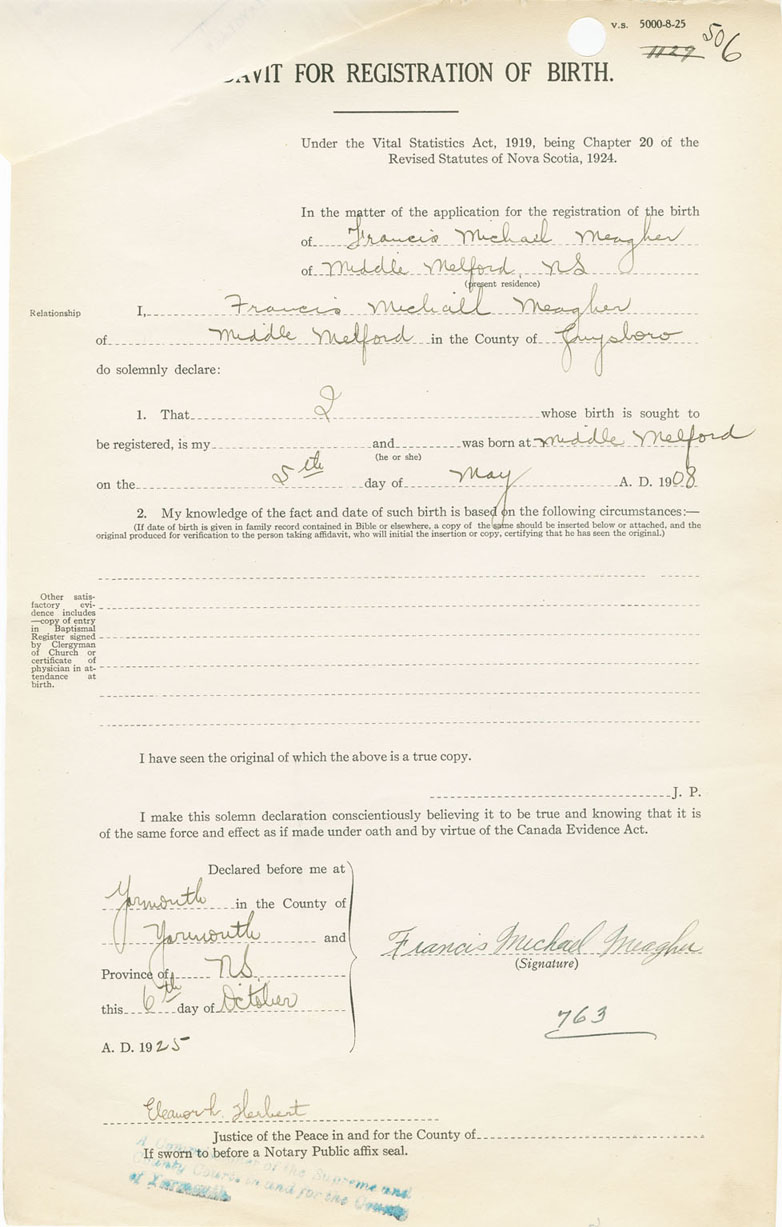 V.S. 5000-8-25
1129 506
DAVIT FOR REGISTRATION OF BIRTH.
Under the Vital Statistics Act, 1919, being Chapter 20 of the
Revised Statutes of Nova Scotia, 1924.
In the matter of the application for the registration of the birth
of Francis Michael Meagher
of Middle Melford, NS
(present residence)
Relationship I, Francis Michaell Meagher
of Middle Melford in the County of Guysboro
do solemnly declare:
1. That I whose birth is sought to
be registered, is my and was born at Middle Melford
(he or she)
on the 5th day of May A. D. 1908
2. My knowledge of the fact and date of such birth is based on the following circumstances:—
(If date of birth is given in family record contained in Bible or elsewhere, a copy of the same should be inserted below or attached, and the
original produced for verification to the person taking affidavit, who will initial the insertion or copy, certifying that he has seen the original.)
Other satis-
factory evi-
dence includes
—copy of entry
in Baptismal
Register signed
by Clergyman
of Church or
certificate of
physician in at-
tendance at
birth.
I have seen the original of which the above is a true copy.
J. P.
I make this solemn declaration conscientiously believing it to be true and knowing that it is
of the same force and effect as if made under oath and by virtue of the Canada Evidence Act.
Declared before me at
Yarmouth in the County of
Yarmouth and
Province of NS
this 6th day of October
A. D. 1925
Francis Michael Meagher
(Signature)
763
Eleanor L. Herbert
Justice of the Peace in and for the County of
If sworn to before a Notary Public affix seal.
A Commissioner of the Supreme and
County Courts in and for the County
of Yarmouth